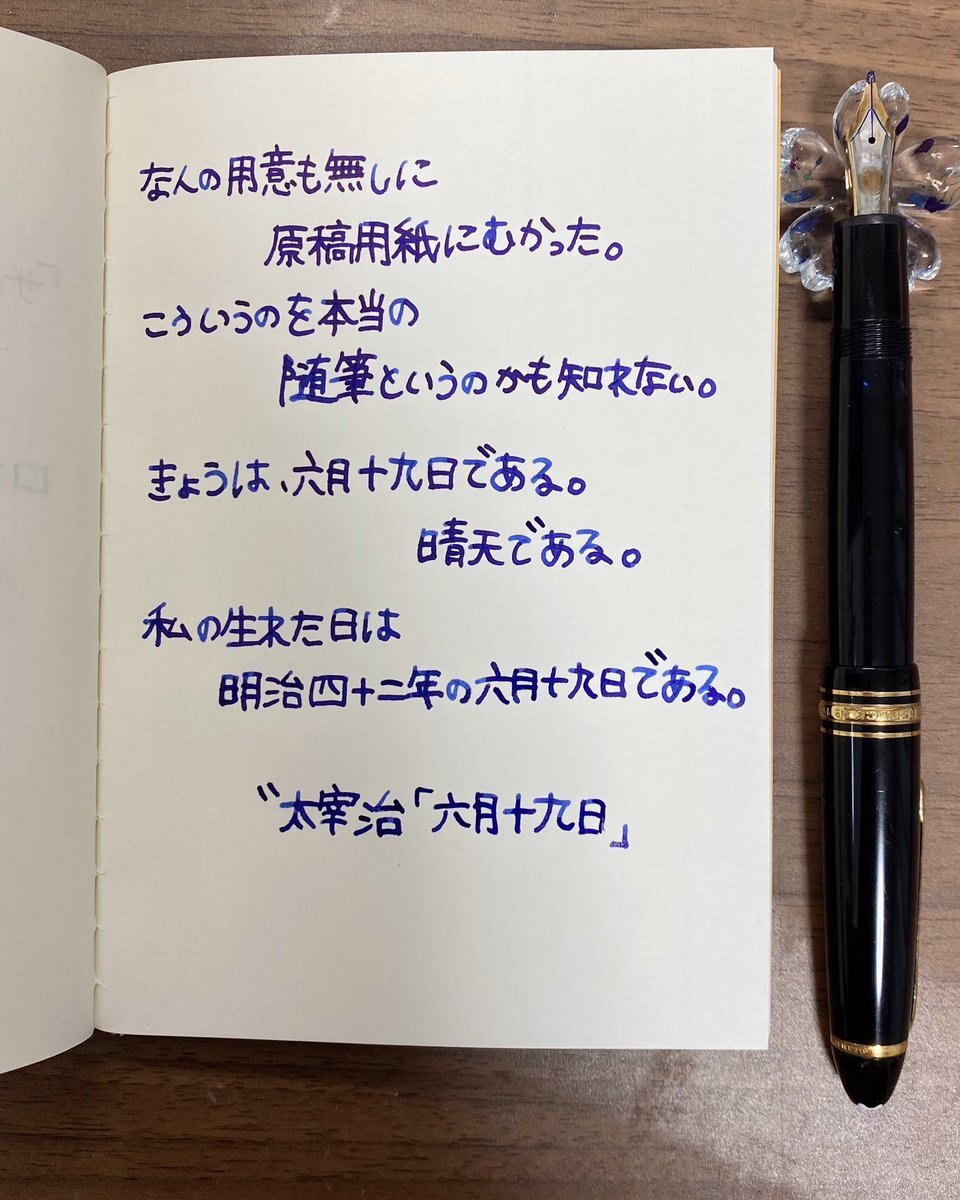 なんの用意も無しに
原稿用紙にむかった。
こういうのを本当の
随筆というのかも知れない。
きょうは、六月十九日である。
晴天である。
私の生れた日は
明治四十二年の六月十九日である。
〃太宰治「六月十九日」